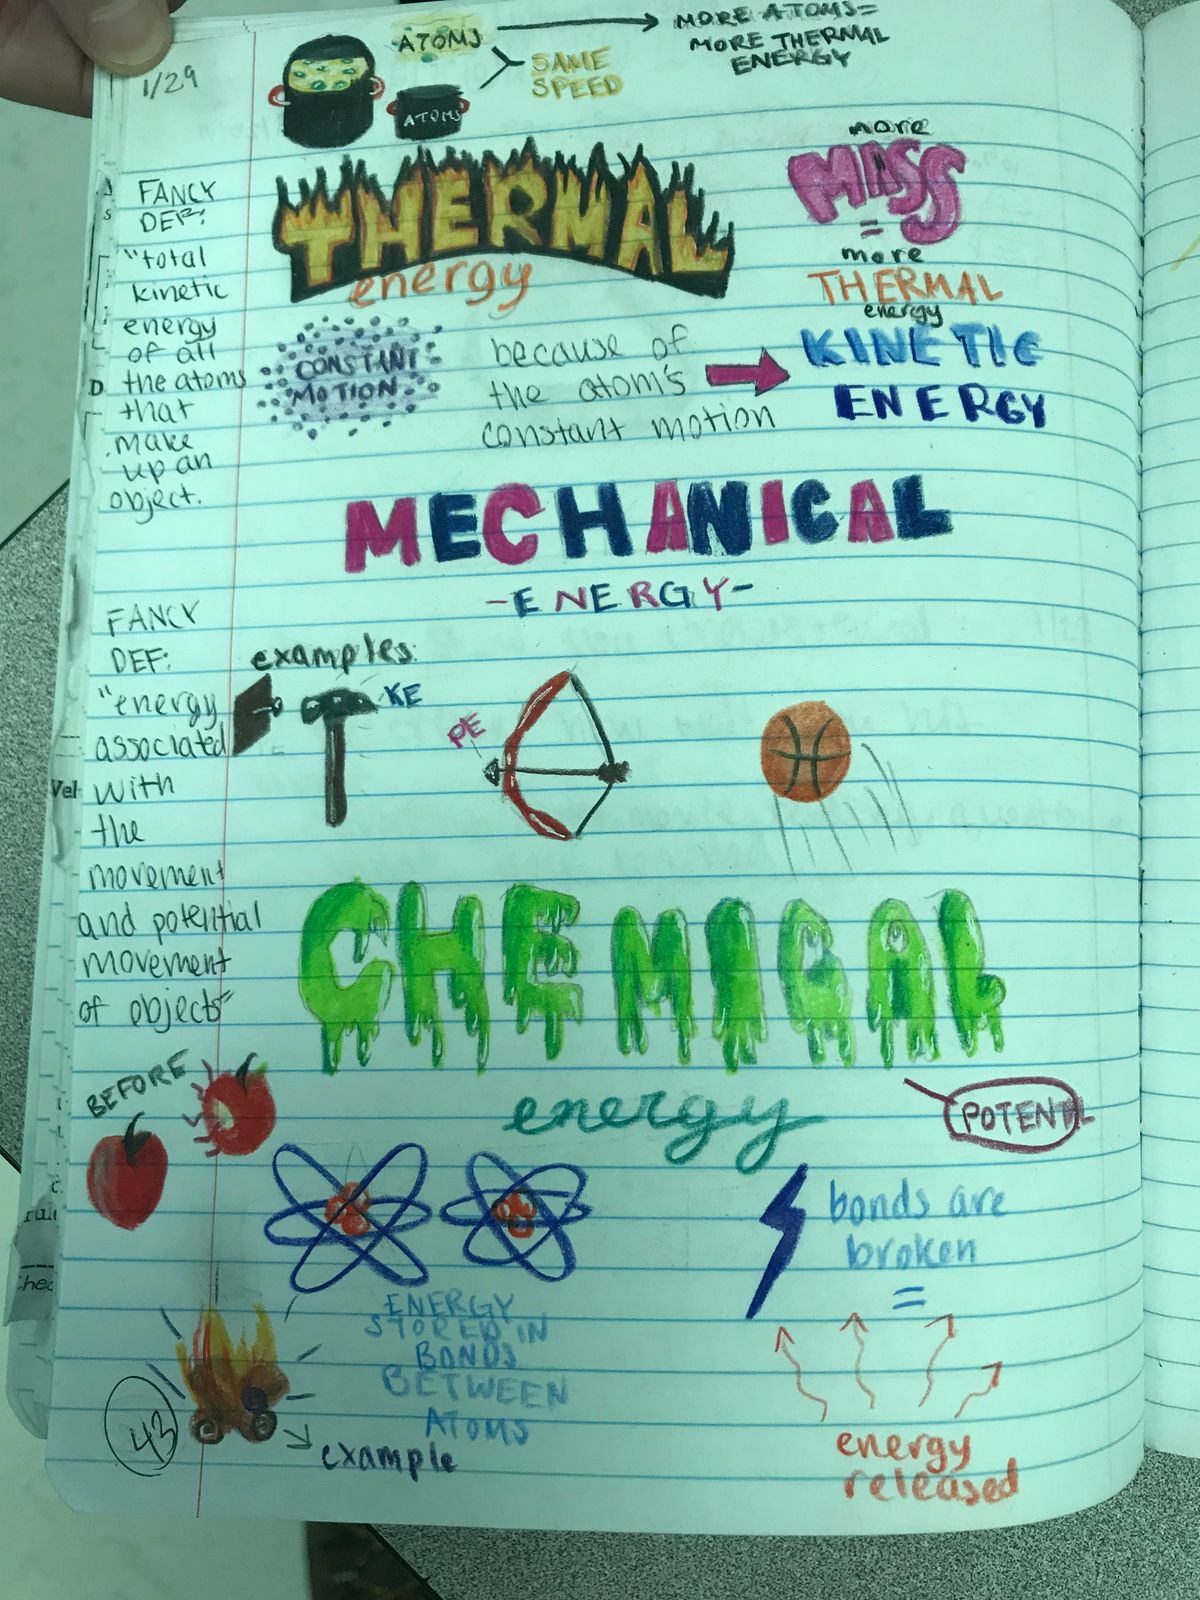 1/29
ATOMS
ATOMS
SAME
SPEED
MORE ATOMS=
MORE THERMAL
ENERGY
FANCY
DEF:
"total
kinetic
energy
of all
the atoms
that
make
up an
object.
THERMAL
energy
more
MASS
=
more
THERMAL
energy
CONSTANT
MOTION
because of
the atom's
constant motion
KINETIC
ENERGY
MECHANICAL
-ENERGY-
FANCY
DEF:
"energy
associated
with
the
movement
and potential
movement
of objects"
examples:
KE
PE
CHEMICAL
energy
POTENTL
BEFORE
ENERGY
STORED IN
BONDS
BETWEEN
ATOMS
bonds are
broken
=
energy
released
example
43
D
Vel